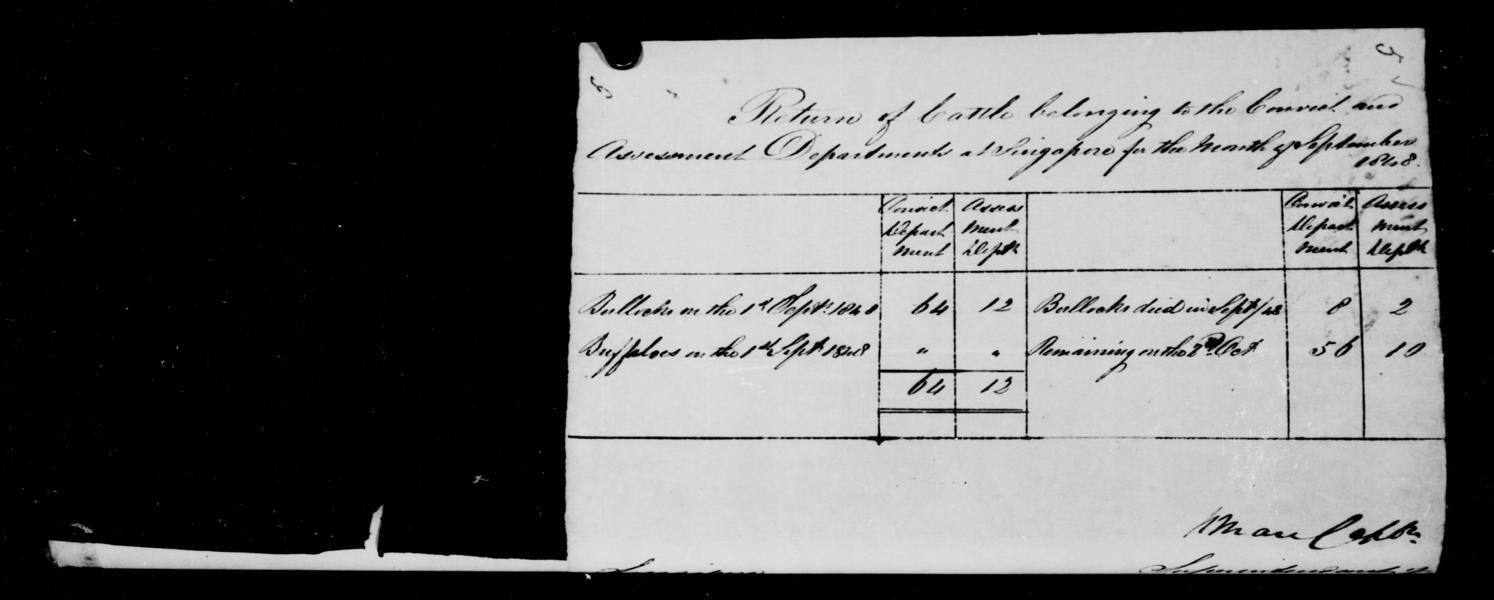 Return of Cattle belonging to the Convict and
Assessment Departments at Singapore for the Month of September
1848.
Convict Depart ment | Assess ment Deptt | Convict Depart ment | Assess ment Deptt
Bullocks on the 1st Septr. 1848 64 12 Bullocks died in Septr/48 8 2
Buffaloes on the 1st Septr 1848 " " Remaining on the Oct 56 10
64 12
Man Captn
Singapore
Superintendent of